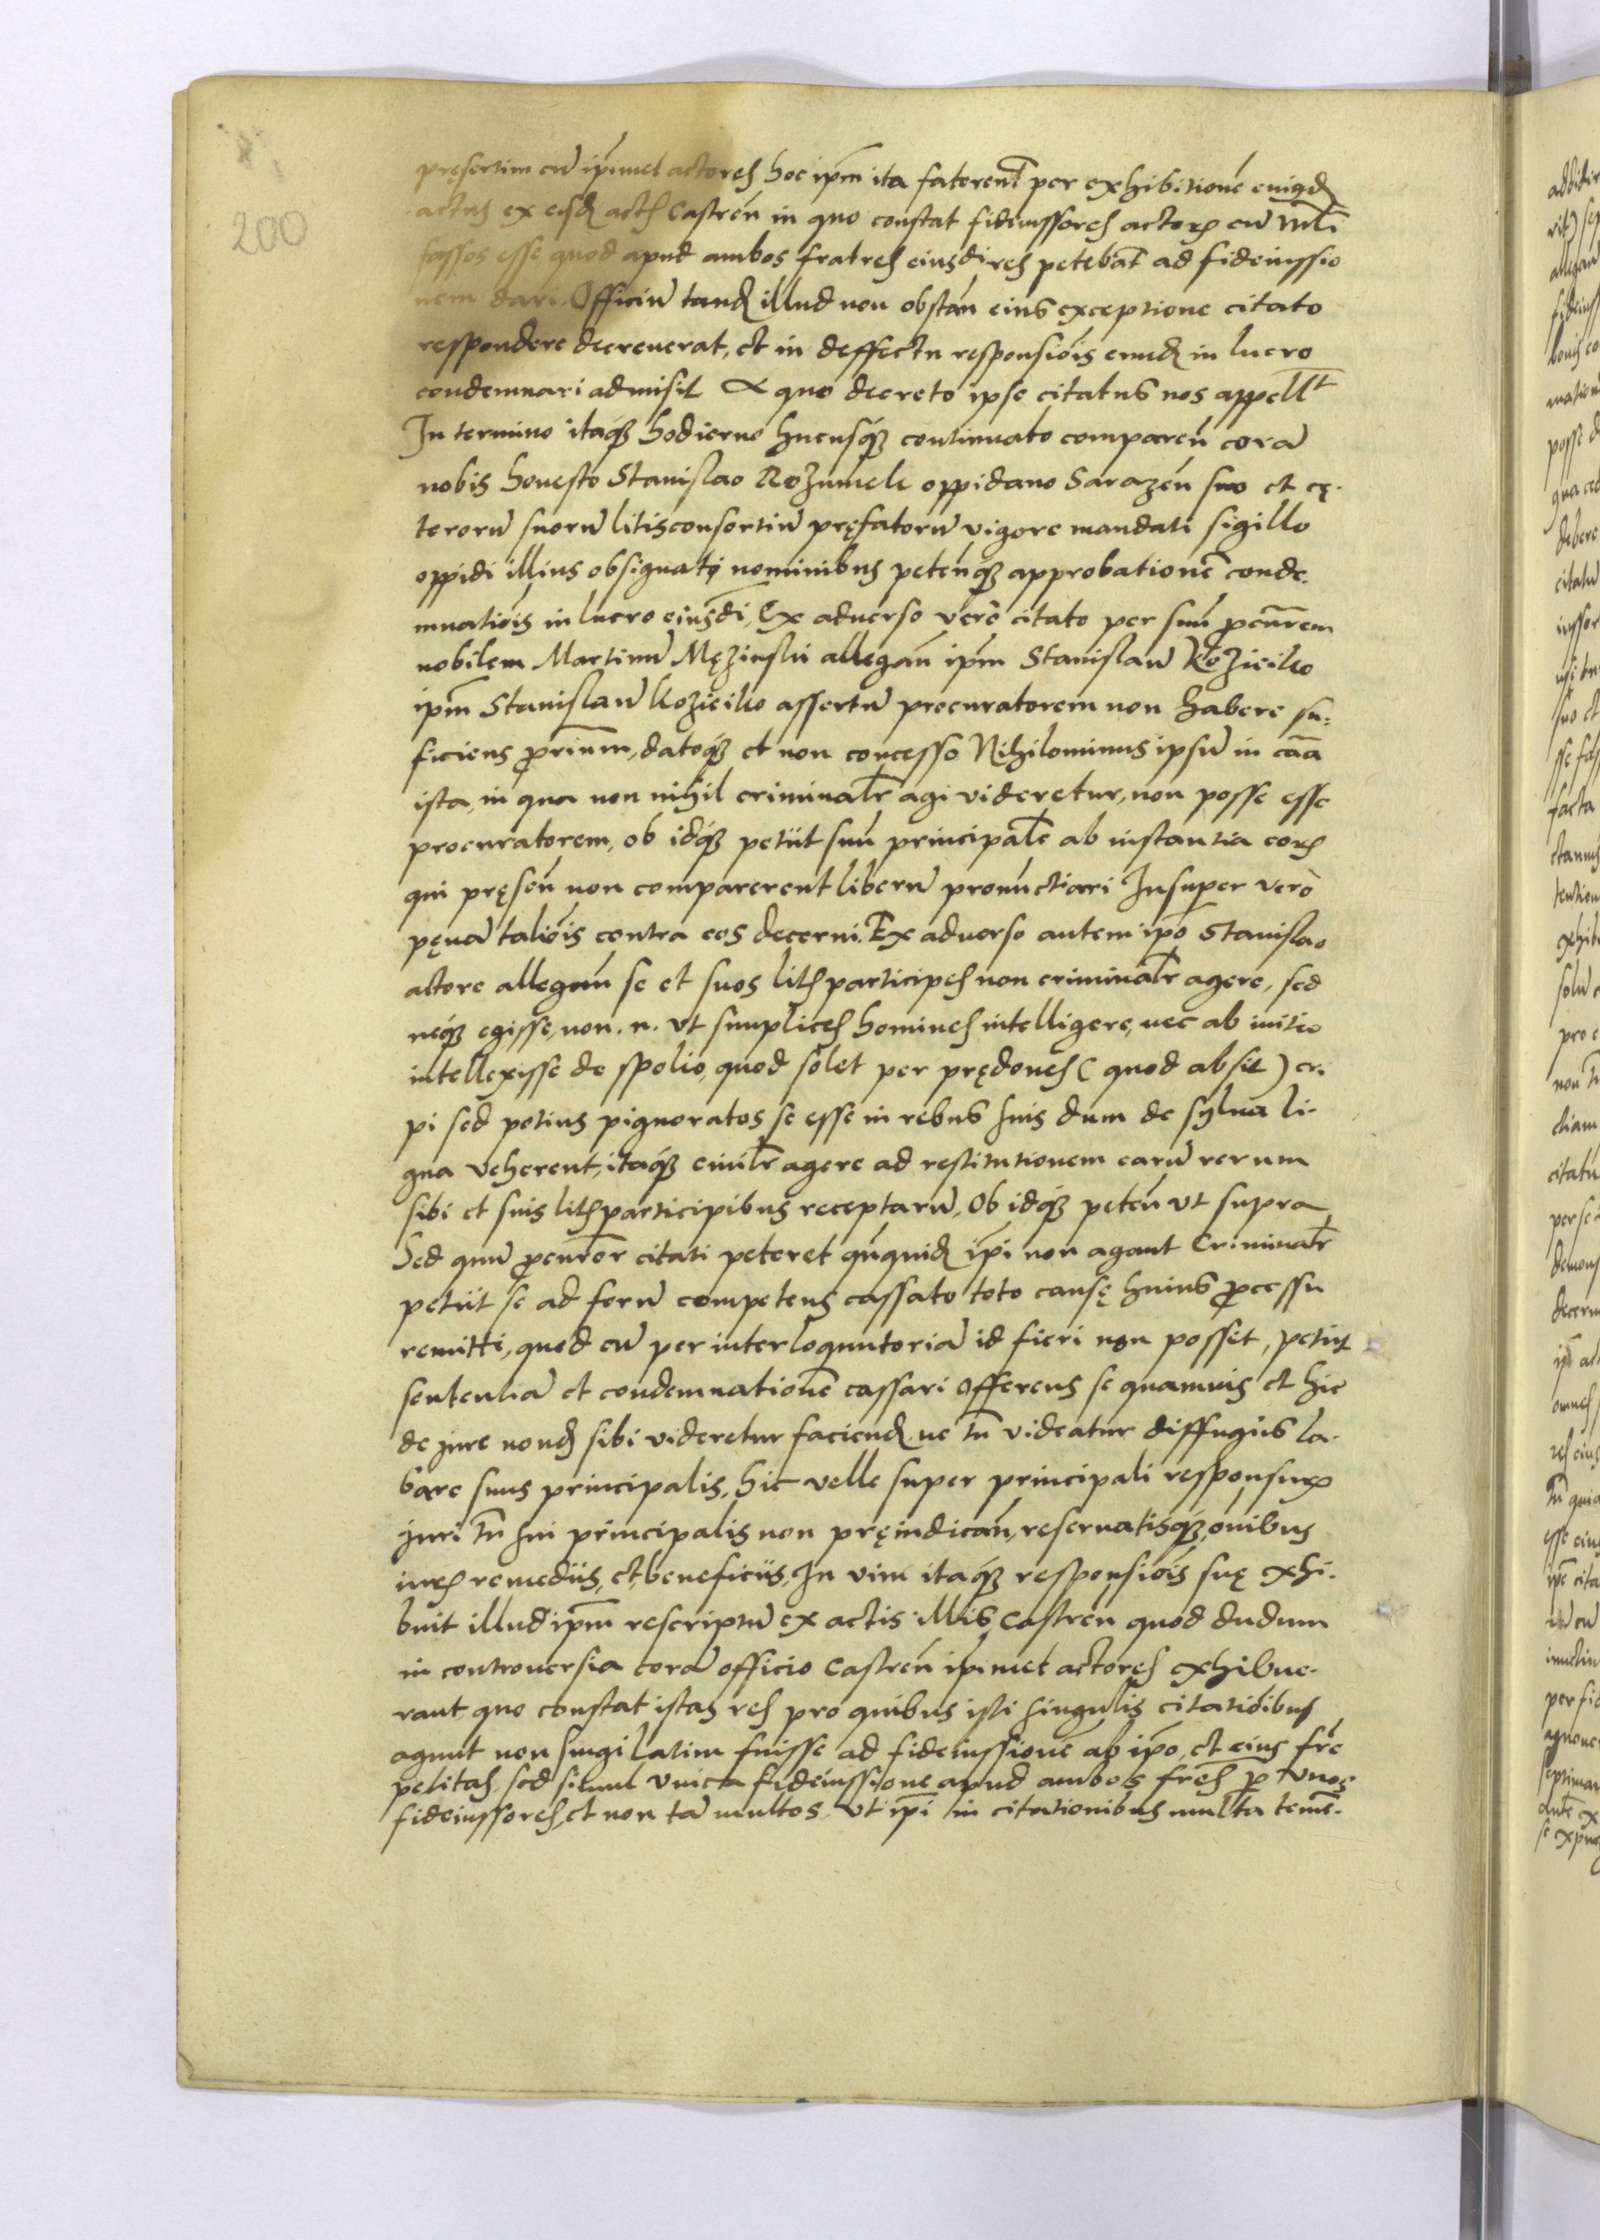 200
pręsertim cū ipīmet actores hoc ipm̄ ita faterent̄ per exhibitionē cuiqd
actus ex eisd actis Castreń in quo constat fideiussores actorꝝ cū
fassos esse quod apud ambos fratres eiusdi res petebāt ad fideiussio
nem dari. Officiū tand illud non obstań eius exceptione citato
respondere decreuerat, et in deffectu responsiōis eund in lucro
condemnari admisit A quo decreto ipse citatus nos appellt
In termino itaqȝ hodierno hucusqȝ continuato compareń corā
nobis honesto Stanislao Rozumek oppidano Sarazeń suo et cę-
terorū suorū litisconsortiū pręfatorū vigore mandati sigillo
oppidi illius obsignati nominibus peteńqȝ approbationē conde-
mnatiōis in lucro eiusdi, Ex aduerso vero citato per suū pcurrem
nobilem Martinū Męzinski allegań ipm̄ Stanislaū Kozieiko
ipm̄ Stanislaū Kozieiko assertū procuratorem non habere su-
ficiens prium, datoqȝ et non concesso Nihilominus ipsū in cāa
ista, in qua non nihil criminalr̄ agi videretur, non posse esse
procuratorem, ob idqȝ petiit suū principalē ab instantia eorꝝ
qui pręseń non comparerent liberū pronunctiari Insuper verò
pęnā taliōis contra eos decerni. Ex aduerso autem ipō Stanislao
actore allegań se et suos litis participes non criminalr̄ agere, sed
neqȝ egisse, non .n. vt simplices homines intelligere, nec ab initio
intellexisse de spolio, quod solet per prędones (quod absit) eri-
pi sed potius pignoratos se esse in rebus suis dum de sylua li-
gna veherent, itaqȝ ciuilr̄ agere ad restitutionem earū rerum
sibi et suis litis participibus receptarū, Ob idqȝ peteń vt supra
Sed quū pcuror citati peteret ququid ipī non agant Criminalr̄
petiit se ad forū competens cassato toto causę huius pcessu
remitti, quod cū per interloquutoriā id fieri non posset, petiit
sententiā et condemnationē cassari Offerens se quamuis et hic
de jure nond sibi videretur faciend ne tn̄ videatur diffugiis la-
bare suus principalis, hic velle super principali responsurꝝ
juri tn̄ sui principalis non pręiudicań, reseruatisqȝ, oībus
iurꝝ remediis, et beneficiis, In vim itaqȝ responsiōis suę exhi-
buit illud ipm̄ rescriptū ex actis illis Castreń quod dudum
in controuersia corā officio Castreń ipīmet actores exhibue-
rant quo constat istas res pro quibus isti singulis citatiōibus
agunt non singilatim fuisse ad fideiussionē ab ipō, et eius frē
petitas, sed simul vnica fideiussione apud ambos fres p vnos
fideiussores, et non tā multos. vt ipī in citationibus multa temē-